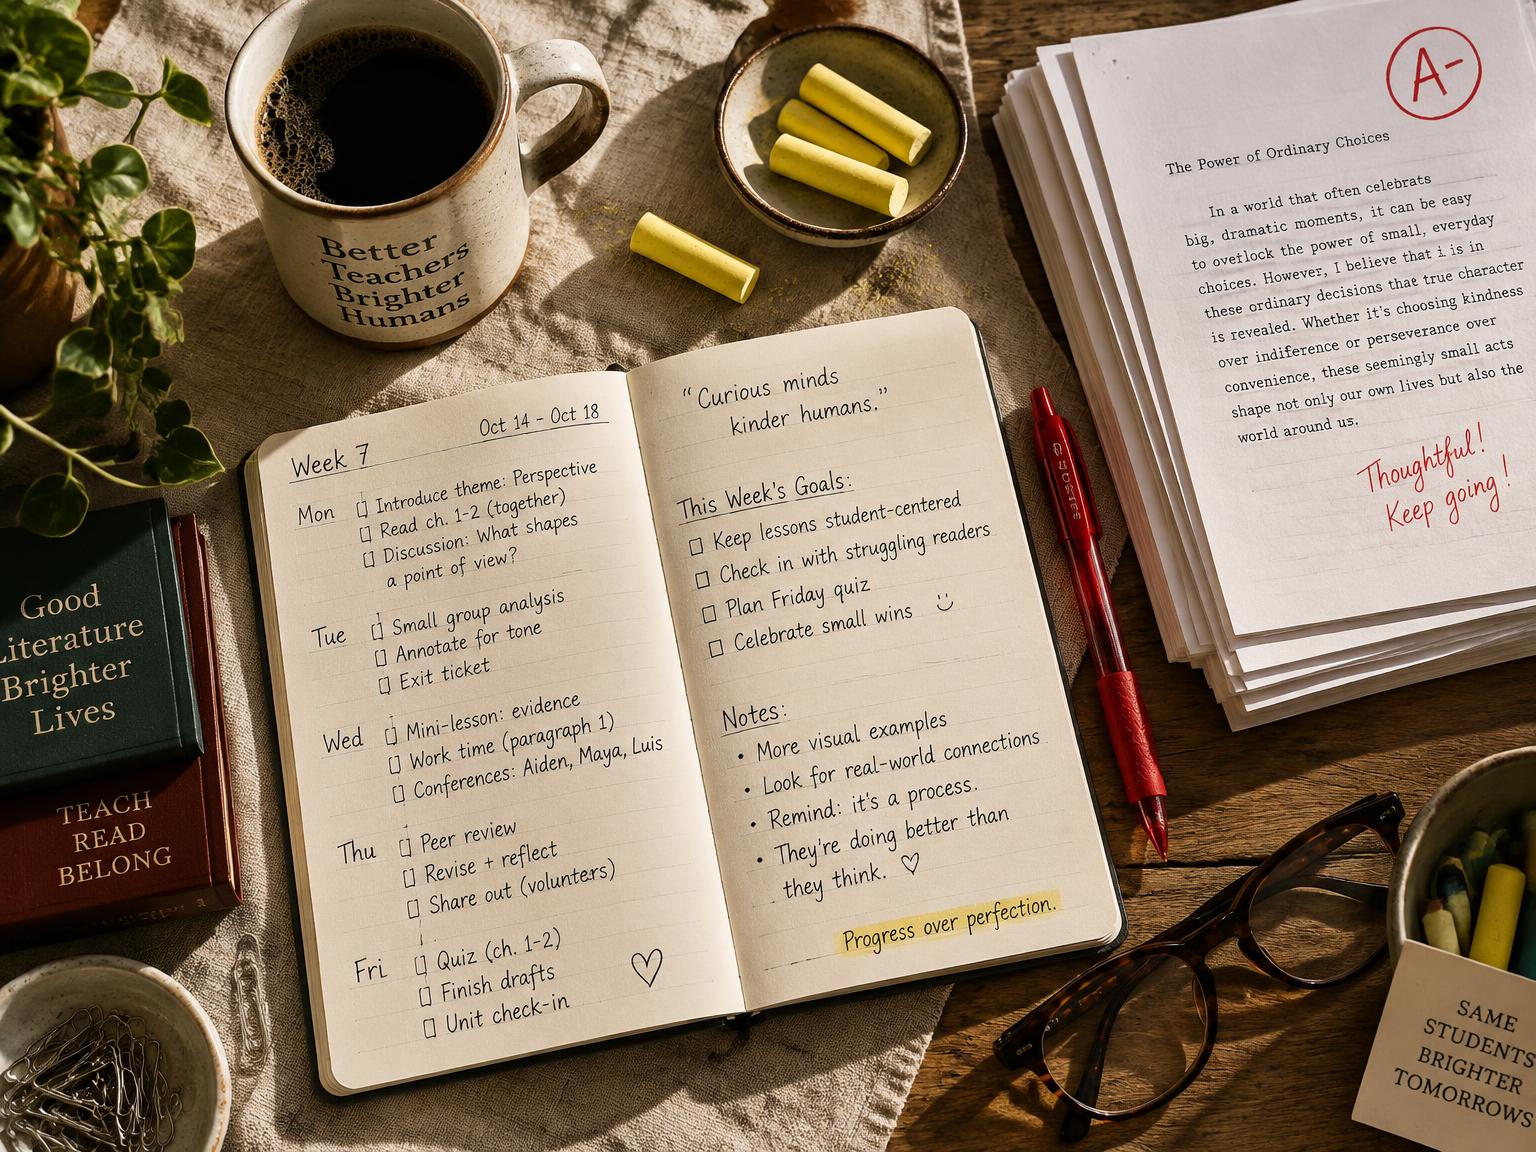 Better
Teachers
Brighter
Humans
A-
The Power of Ordinary Choices
In a world that often celebrats
big, dramatic moments, it can be easy
to overlock the power of small, everyday
choices. However, I believe that i is in
these ordinary decisions that true character
is revealed. Whether it's choosing kindness
over indiference or perseverance over
convenience, these seemingly small acts
shape not only our own lives but also the
world around us.
Thoughtful!
Keep going!
Week 7
Oct 14 – Oct 18
Mon
Introduce theme: Perspective
Read ch. 1-2 (together)
Discussion: What shapes
a point of view?
Tue
Small group analysis
Annotate for tone
Exit ticket
Wed
Mini-lesson: evidence
Work time (paragraph 1)
Conferences: Aiden, Maya, Luis
Thu
Peer review
Revise + reflect
Share out (volunters)
Fri
Quiz (ch. 1-2)
Finish drafts
Unit check-in
"Curious minds
kinder humans."
This Week's Goals:
Keep lessons student-centered
Check in with struggling readers
Plan Friday quiz
Celebrate small wins
Notes:
• More visual examples
• Look for real-world connections
• Remind: it's a process.
• They're doing better than
they think.
Progress over perfection.
Good
Literature
Brighter
Lives
TEACH
READ
BELONG
SAME
STUDENTS
BRIGHTER
TOMORROWS